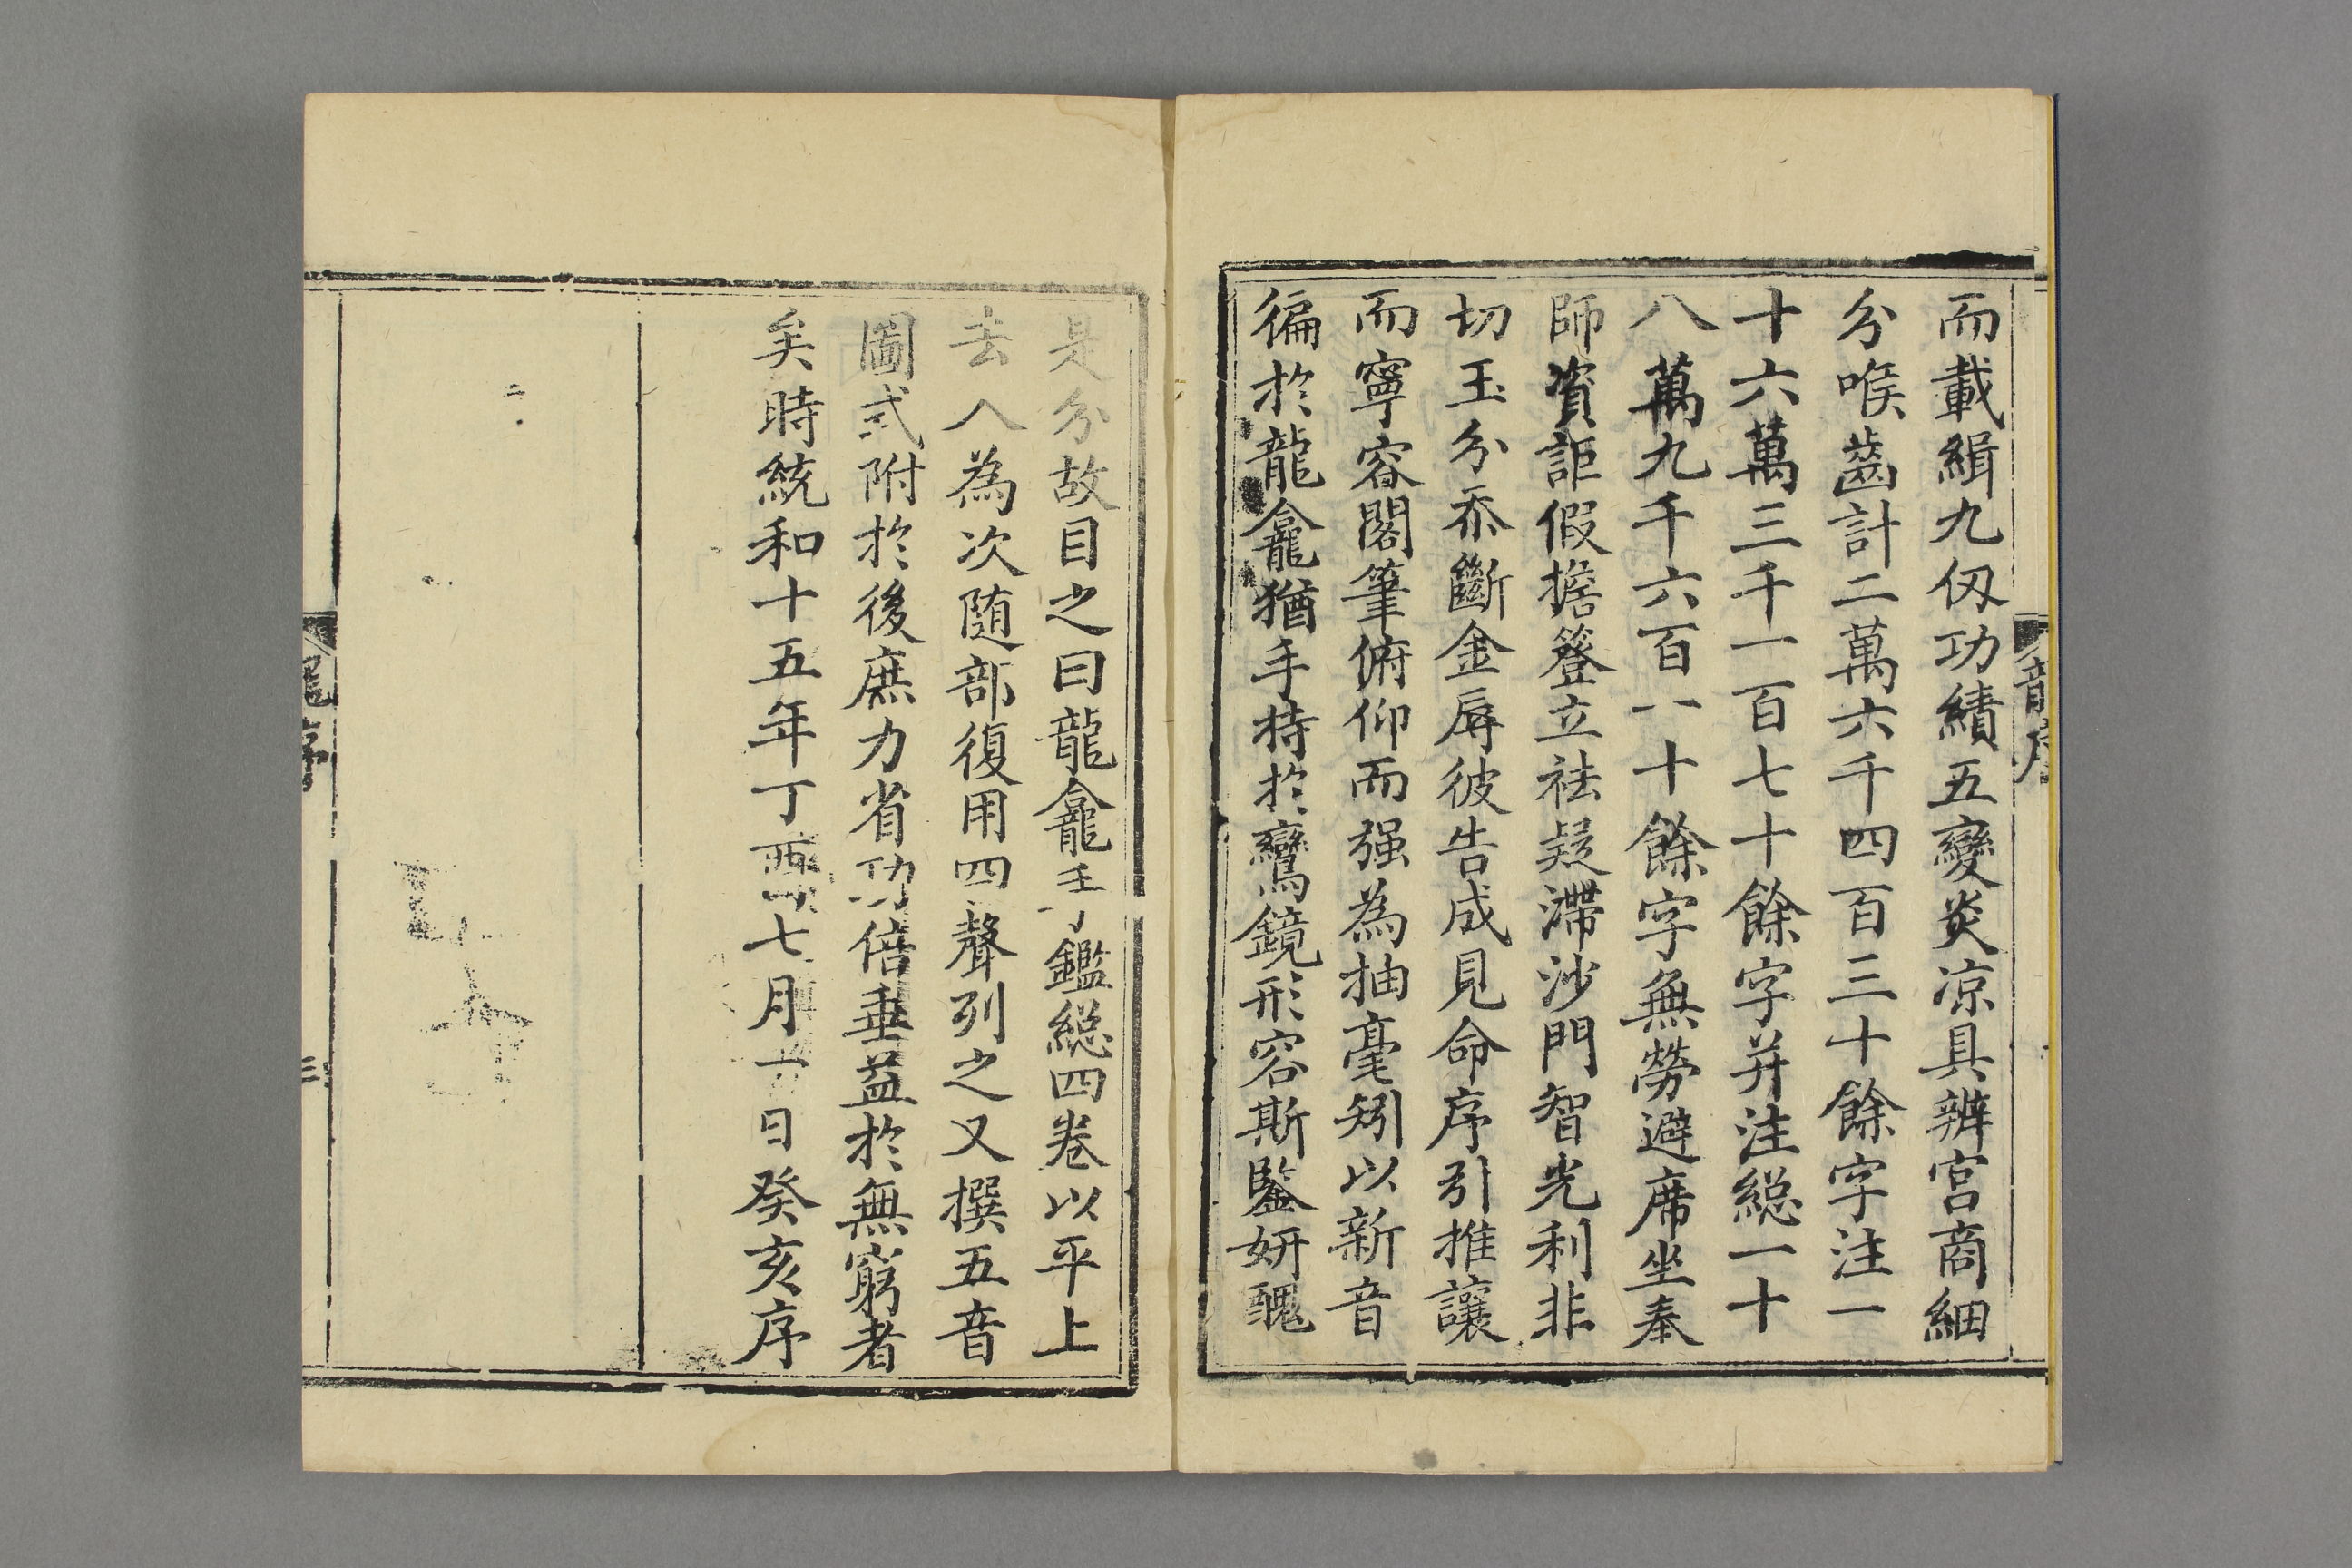 龍序
而載緝九仭功績五變炎凉具辨宮商細
分喉齒計二萬六千四百三十餘字注一
十六萬三千一百七十餘字并注緫一十
八萬九千六百一十餘字無勞避席坐奉
師資詎假擔簦立祛疑滯沙門智光利非
切玉分忝斷金辱彼告成見命序引推讓
而寧容閣筆俯仰而强為抽毫矧以新音
徧於龍龕猶手持於鸞鏡形容斯鑒妍醜
是分故目之曰龍龕手鑑緫四卷以平上
去入為次随部復用四聲列之又撰五音
圖式附於後庶力省功倍垂益於無窮者
矣時統和十五年丁酉七月一日癸亥序
龍序
三